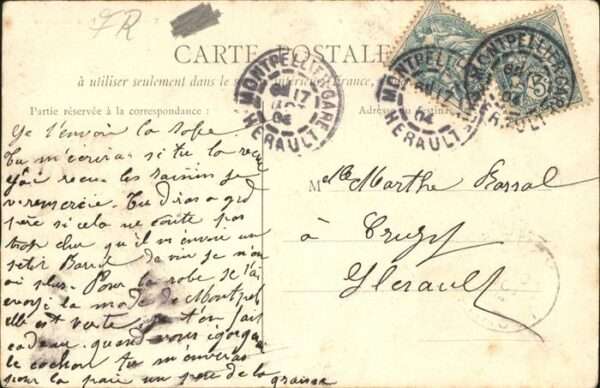 FR
CARTE POSTALE
à utiliser seulement dans le intérieur France,
Partie réservée à la correspondance :
MONTPELLIER-GARE
17
04
HERAULT
MONTPELLIER
17
04
HERAULT
MONTPELLIER-GARE
17
04
HERAULT
5
Je t'envoie la robe
Tu m'écriras si tu la
j'ai recu les raisins je
remercie. Tu diras a
père si cela ne coute pas
trop cher qu'il m'envoie un
petit Baril de vin je n'en
ai plus. Pour la robe je t'ai
envoyé la mode de Montpel
elle est verte je t'en fais
cadeau. quand vous
le cochon tu m'enverras
pour la un peu de la graisse
Mlle Marthe Barral
à Cruzy
Hérault